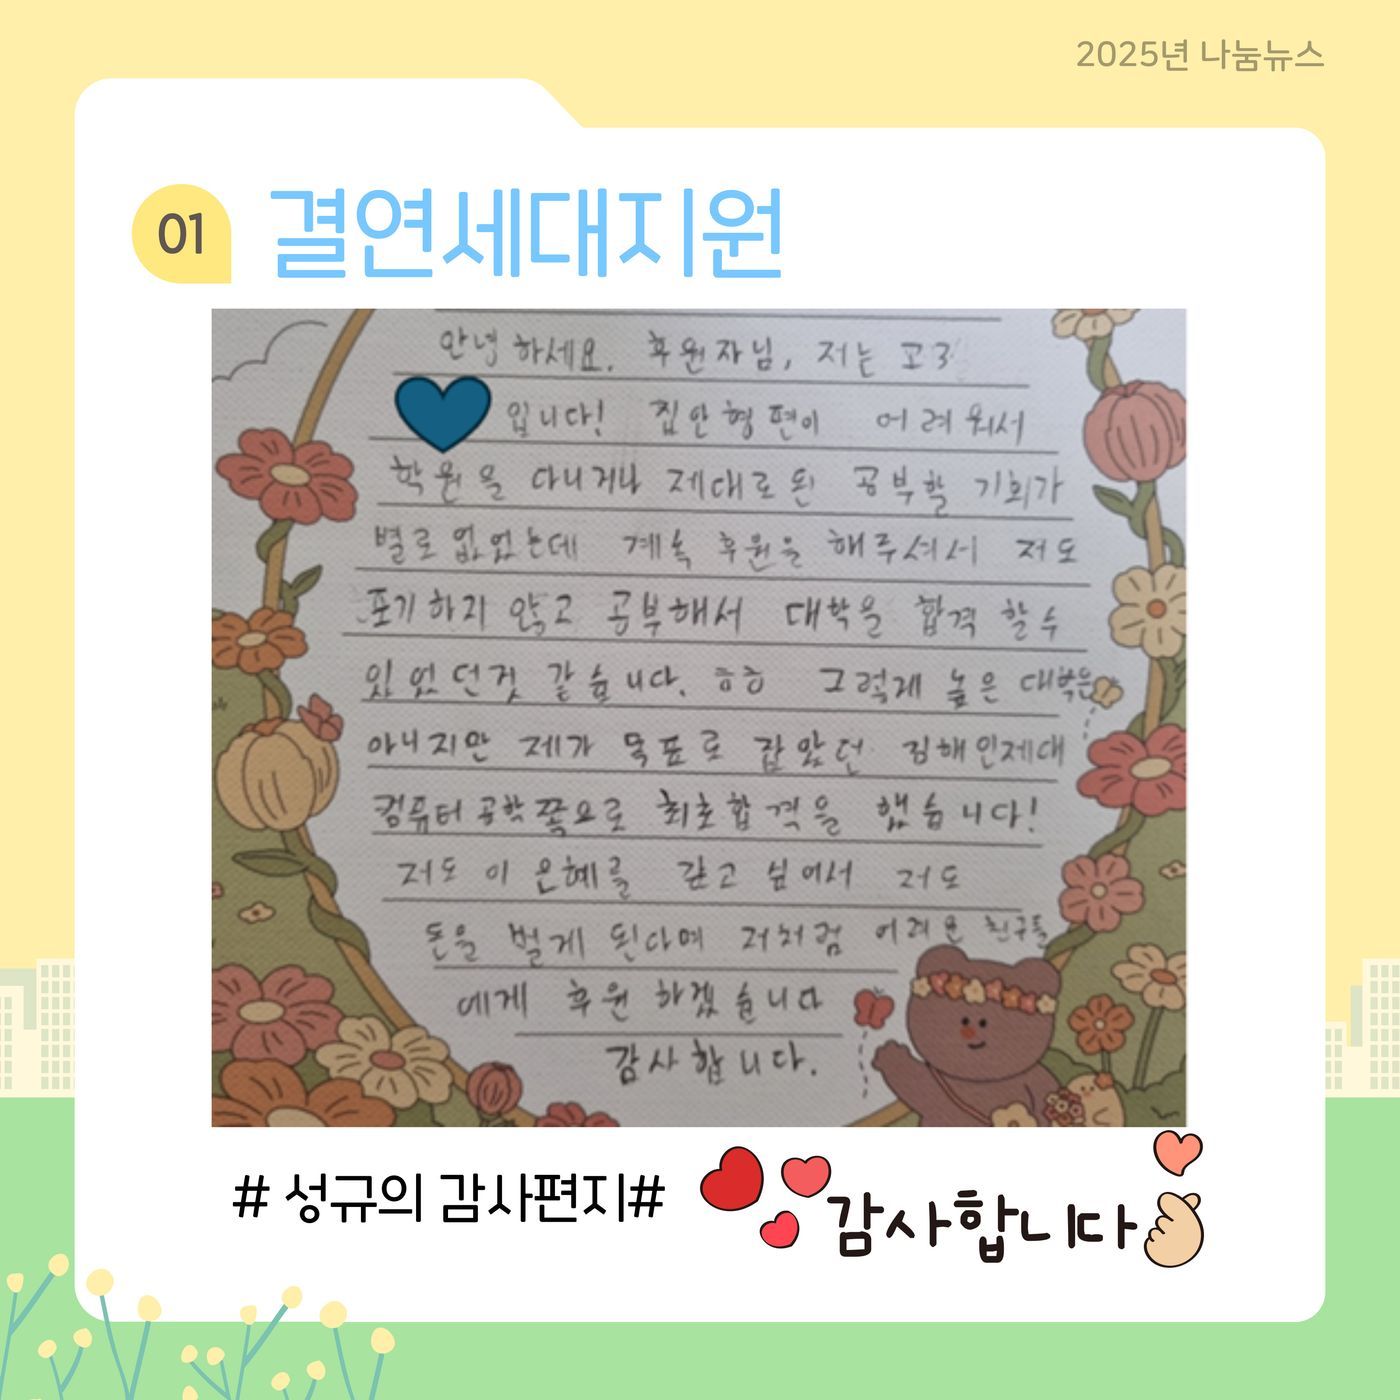 2025년 나눔뉴스
01
결연세대지원
안녕하세요. 후원자님, 저는 고3
입니다! 집안형편이 어려워서
학원을 다니거나 제대로된 공부할 기회가
별로 없었는데 계속 후원을 해주셔서 저도
포기하지 않고 공부해서 대학을 합격 할수
있었던것 같습니다. ㅎㅎ 그렇게 높은 대학은
아니지만 제가 목표로 잡았던 김해인제대
컴퓨터공학쪽으로 최초합격을 했습니다!
저도 이 은혜를 갚고 싶어서 저도
돈을 벌게 된다며 저처럼 어려운 친구들
에게 후원 하겠습니다
감사합니다.
# 성규의 감사편지#
감사합니다